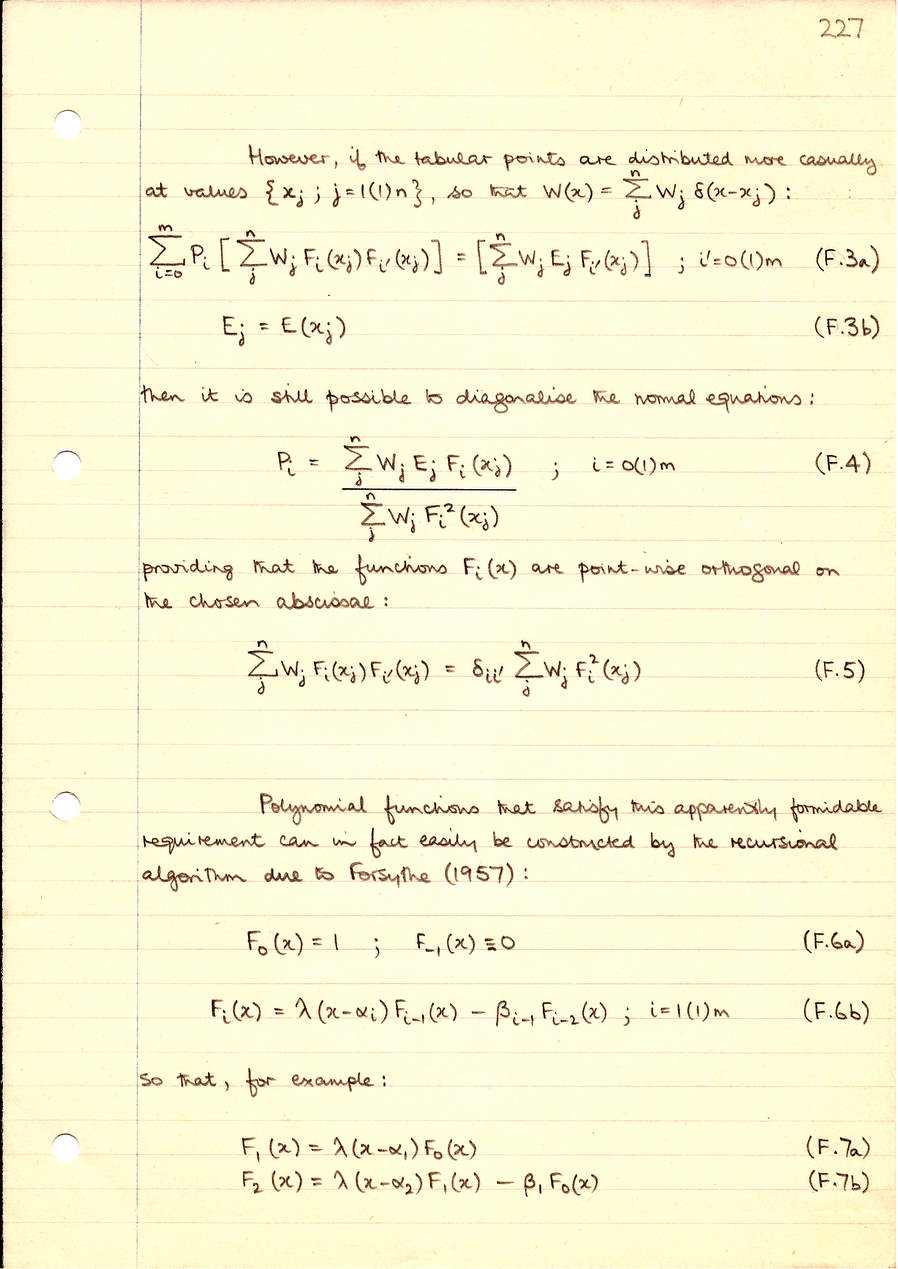 227
However, if the tabular points are distributed more casually
at values {xⱼ ; j=1(1)n}, so that W(x) = ∑ⱼⁿ Wⱼ δ(x-xⱼ) :
∑ᵢ₌₀ᵐ Pᵢ [ ∑ⱼⁿ Wⱼ Fᵢ(xⱼ) Fᵢ′(xⱼ) ] = [ ∑ⱼⁿ Wⱼ Eⱼ Fᵢ′(xⱼ) ] ; i′=0(1)m (F.3a)
Eⱼ = E(xⱼ) (F.3b)
then it is still possible to diagonalise the normal equations :
Pᵢ = ∑ⱼⁿ Wⱼ Eⱼ Fᵢ(xⱼ) / ∑ⱼⁿ Wⱼ Fᵢ²(xⱼ) ; i = 0(1)m (F.4)
providing that the functions Fᵢ(x) are point-wise orthogonal on
the chosen abscissae :
∑ⱼⁿ Wⱼ Fᵢ(xⱼ) Fᵢ′(xⱼ) = δᵢᵢ′ ∑ⱼⁿ Wⱼ Fᵢ²(xⱼ) (F.5)
Polynomial functions that satisfy this apparently formidable
requirement can in fact easily be constructed by the recursional
algorithm due to Forsythe (1957) :
F₀(x) = 1 ; F₋₁(x) ≡ 0 (F.6a)
Fᵢ(x) = λ(x-αᵢ) Fᵢ₋₁(x) - βᵢ₋₁ Fᵢ₋₂(x) ; i=1(1)m (F.6b)
so that, for example :
F₁(x) = λ(x-α₁) F₀(x) (F.7a)
F₂(x) = λ(x-α₂) F₁(x) - β₁ F₀(x) (F.7b)